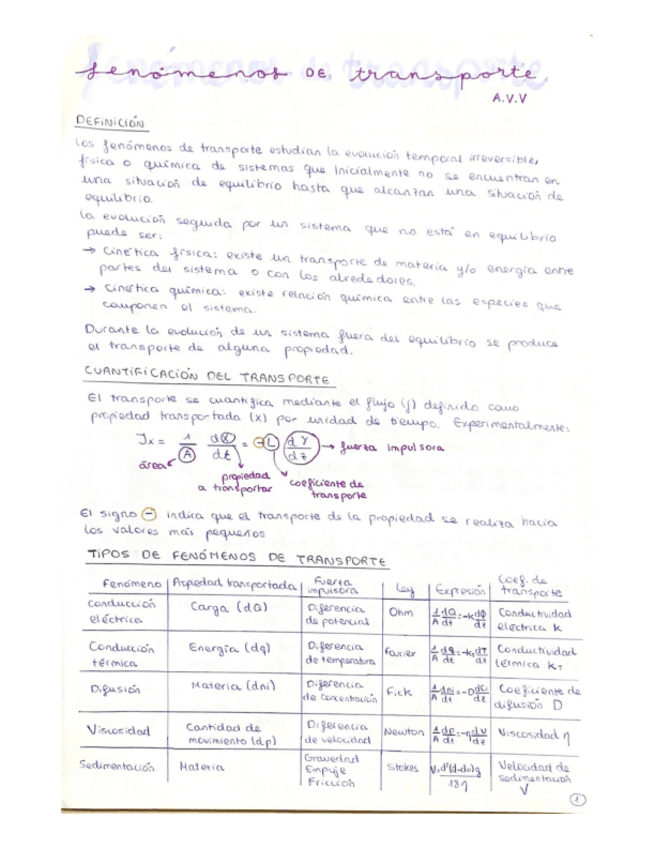 fenómenos DE transporte
A.V.V
DEFINICIÓN
Los fenómenos de transporte estudian la evolución temporal irreversible,
física o química de sistemas que inicialmente no se encuentran en
una situación de equilibrio hasta que alcanzan una situación de
equilibrio.
La evolución seguida por un sistema que no está en equilibrio
puede ser:
→ Cinética física: existe un transporte de materia y/o energía entre
partes del sistema o con los alrededores.
→ Cinética química: existe relación química entre las especies que
componen el sistema.
Durante la evolución de un sistema fuera del equilibrio se produce
el transporte de alguna propiedad.
CUANTIFICACIÓN DEL TRANSPORTE
El transporte se cuantifica mediante el flujo (j) definido como
propiedad transportada (x) por unidad de tiempo. Experimentalmente:
Jx = 1/A dX/dt = -L dY/dz → fuerza impulsora
área
propiedad a transportar
coeficiente de transporte
El signo - indica que el transporte de la propiedad se realiza hacia
los valores más pequeños
TIPOS DE FENÓMENOS DE TRANSPORTE
Fenómeno | Propiedad transportada | Fuerza impulsora | Ley | Expresión | Coef. de transporte
Conducción eléctrica | Carga (dQ) | Diferencia de potencial | Ohm | 1/A dQ/dt = -k dΦ/dt | Conductividad eléctrica k
Conducción térmica | Energía (dq) | Diferencia de temperatura | Fourier | 1/A dq/dt = -kT dT/dt | Conductividad térmica kT
Difusión | Materia (dni) | Diferencia de concentración | Fick | 1/A dni/dt = -D dCi/dz | Coeficiente de difusión D
Viscosidad | Cantidad de movimiento (dp) | Diferencia de velocidad | Newton | 1/A dp/dt = -η dv/dz | Viscosidad η
Sedimentación | Materia | Gravedad Empuje Fricción | Stokes | V=d²(d-do)g/18η | Velocidad de sedimentación V
1